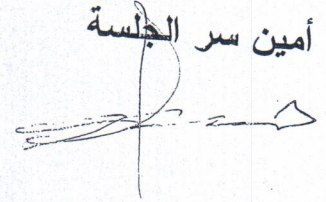 أمين سر الجلسة